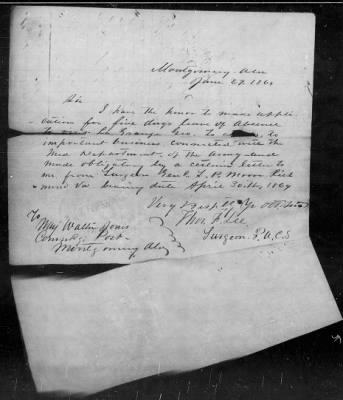 Montgomery Ala
June 27. 1864
Sir
I have the honor to make appli-
cation for five days leave of Absence
to visit La Grange Geo. to attend to
important business connected with the
Med Department of the Army and
made obligatory by a certain letter to
me from Surgeon Genl. S. P. Moore Rich
mond Va bearing date April 30th 1864
Very Respectfully Yr Obt Servt
Thos. F. Lee
Surgeon P.A.C.S
To
Maj Walter Jones
Comdg Post
Montgomery Ala